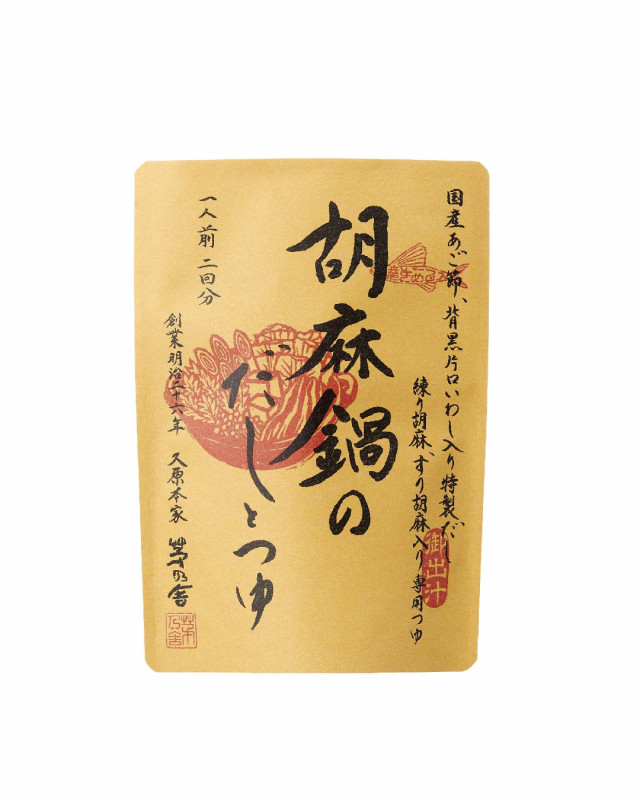 国産あご節、背黒片口いわし入り特製だし
練り胡麻、すり胡麻入り専用つゆ
御出汁
胡麻鍋の
だしとつゆ
一人前 二回分
創業明治二十六年 久原本家 茅乃舎
茅乃舎